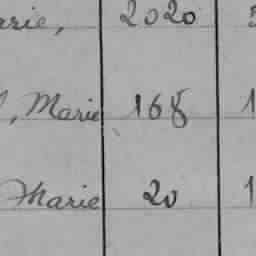 arie, 2020
, Marie 168 1
Marie 20 1